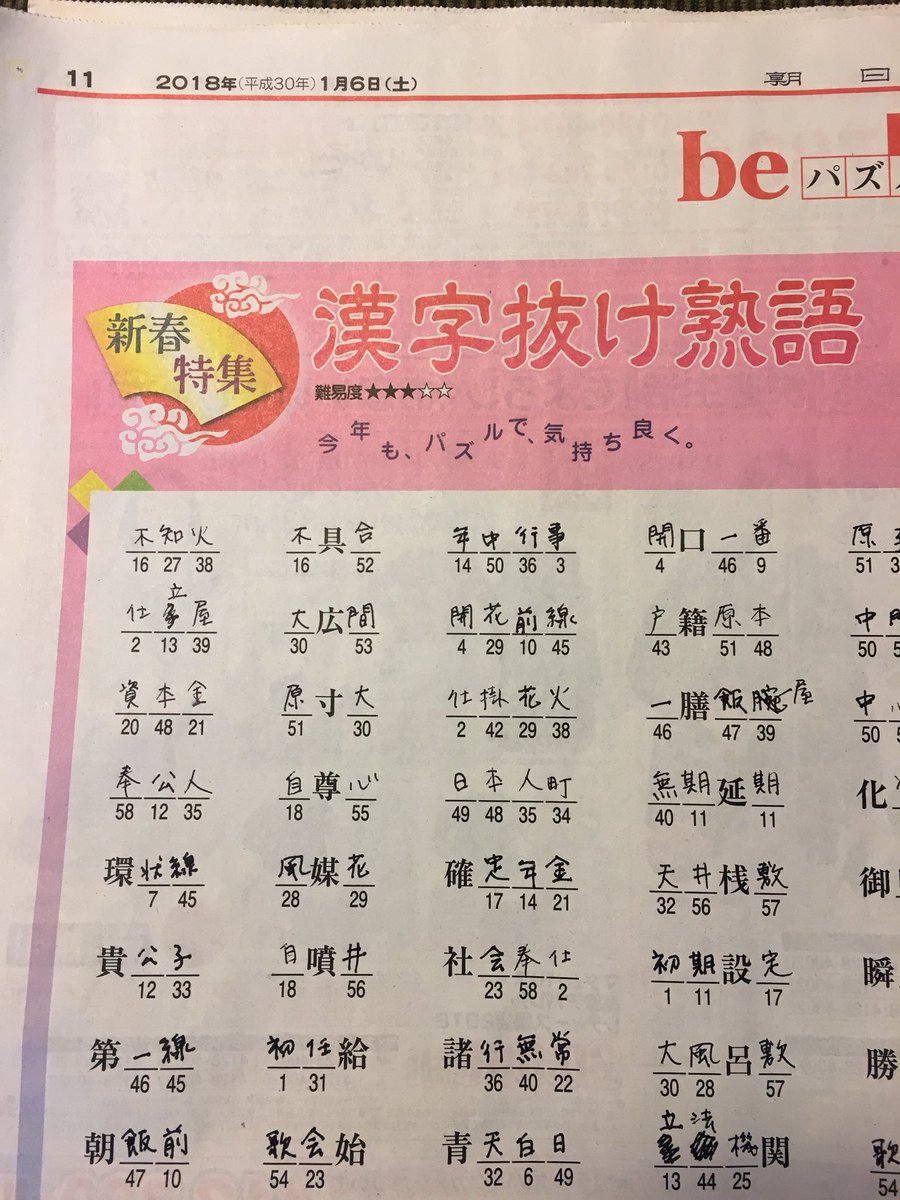 11 2018年(平成30年)1月6日(土) 朝 日
be パズ
新春特集
漢字抜け熟語
難易度★★★☆☆
今年も、パズルで、気持ち良く。
不知火 不具合 年中行事 開口一番 原
16 27 38 16 52 14 50 36 3 4 46 9 51
仕立屋 大広間 開花前線 戸籍原本 中
2 13 39 30 53 4 29 10 45 43 51 48 50
資本金 原寸大 仕掛花火 一膳飯屋 中
20 48 21 51 30 2 42 29 38 46 47 39 50
奉公人 自尊心 日本人町 無期延期 化
58 12 35 18 55 49 48 35 34 40 11 11
環状線 風媒花 確定年金 天井桟敷 御
7 45 28 29 17 14 21 32 56 57
貴公子 自噴井 社会奉仕 初期設定 瞬
12 33 18 56 23 58 2 1 11 17
第一線 初任給 諸行無常 大風呂敷 勝
46 45 1 31 36 40 22 30 28 57
朝飯前 歌会始 青天白日 立法機関 歌
47 10 54 23 32 6 49 13 44 25 54